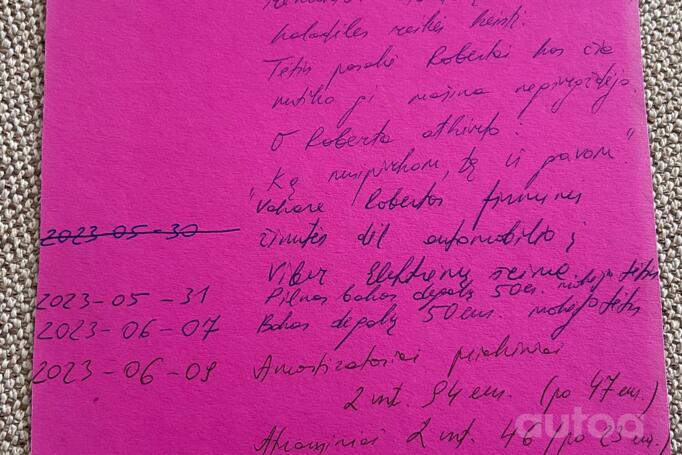 kaladiles reikės keisti.
Tėtis pasakė Robertui kas čia
nutiko ji mašina nepavažiuoja.
O Roberta atkirto:
"Ką nusipirkom, tą ir pavarom."
vakare Robertas
žinutes dėl automobilio į
Viber Elektrėnų šeima.
2023-05-30
2023-05-31 Pilnas bakas degalų 50 eu. mokėjo tėtis
2023-06-07 Bakas degalų 50 eu. mokėjo tėtis
2023-06-09 Amortizatoriai priekiniai
2 vnt. 94 eu. (po 47 eu.)
Atraminiai 2 vnt. 46 (po 23 eu.)
autoa